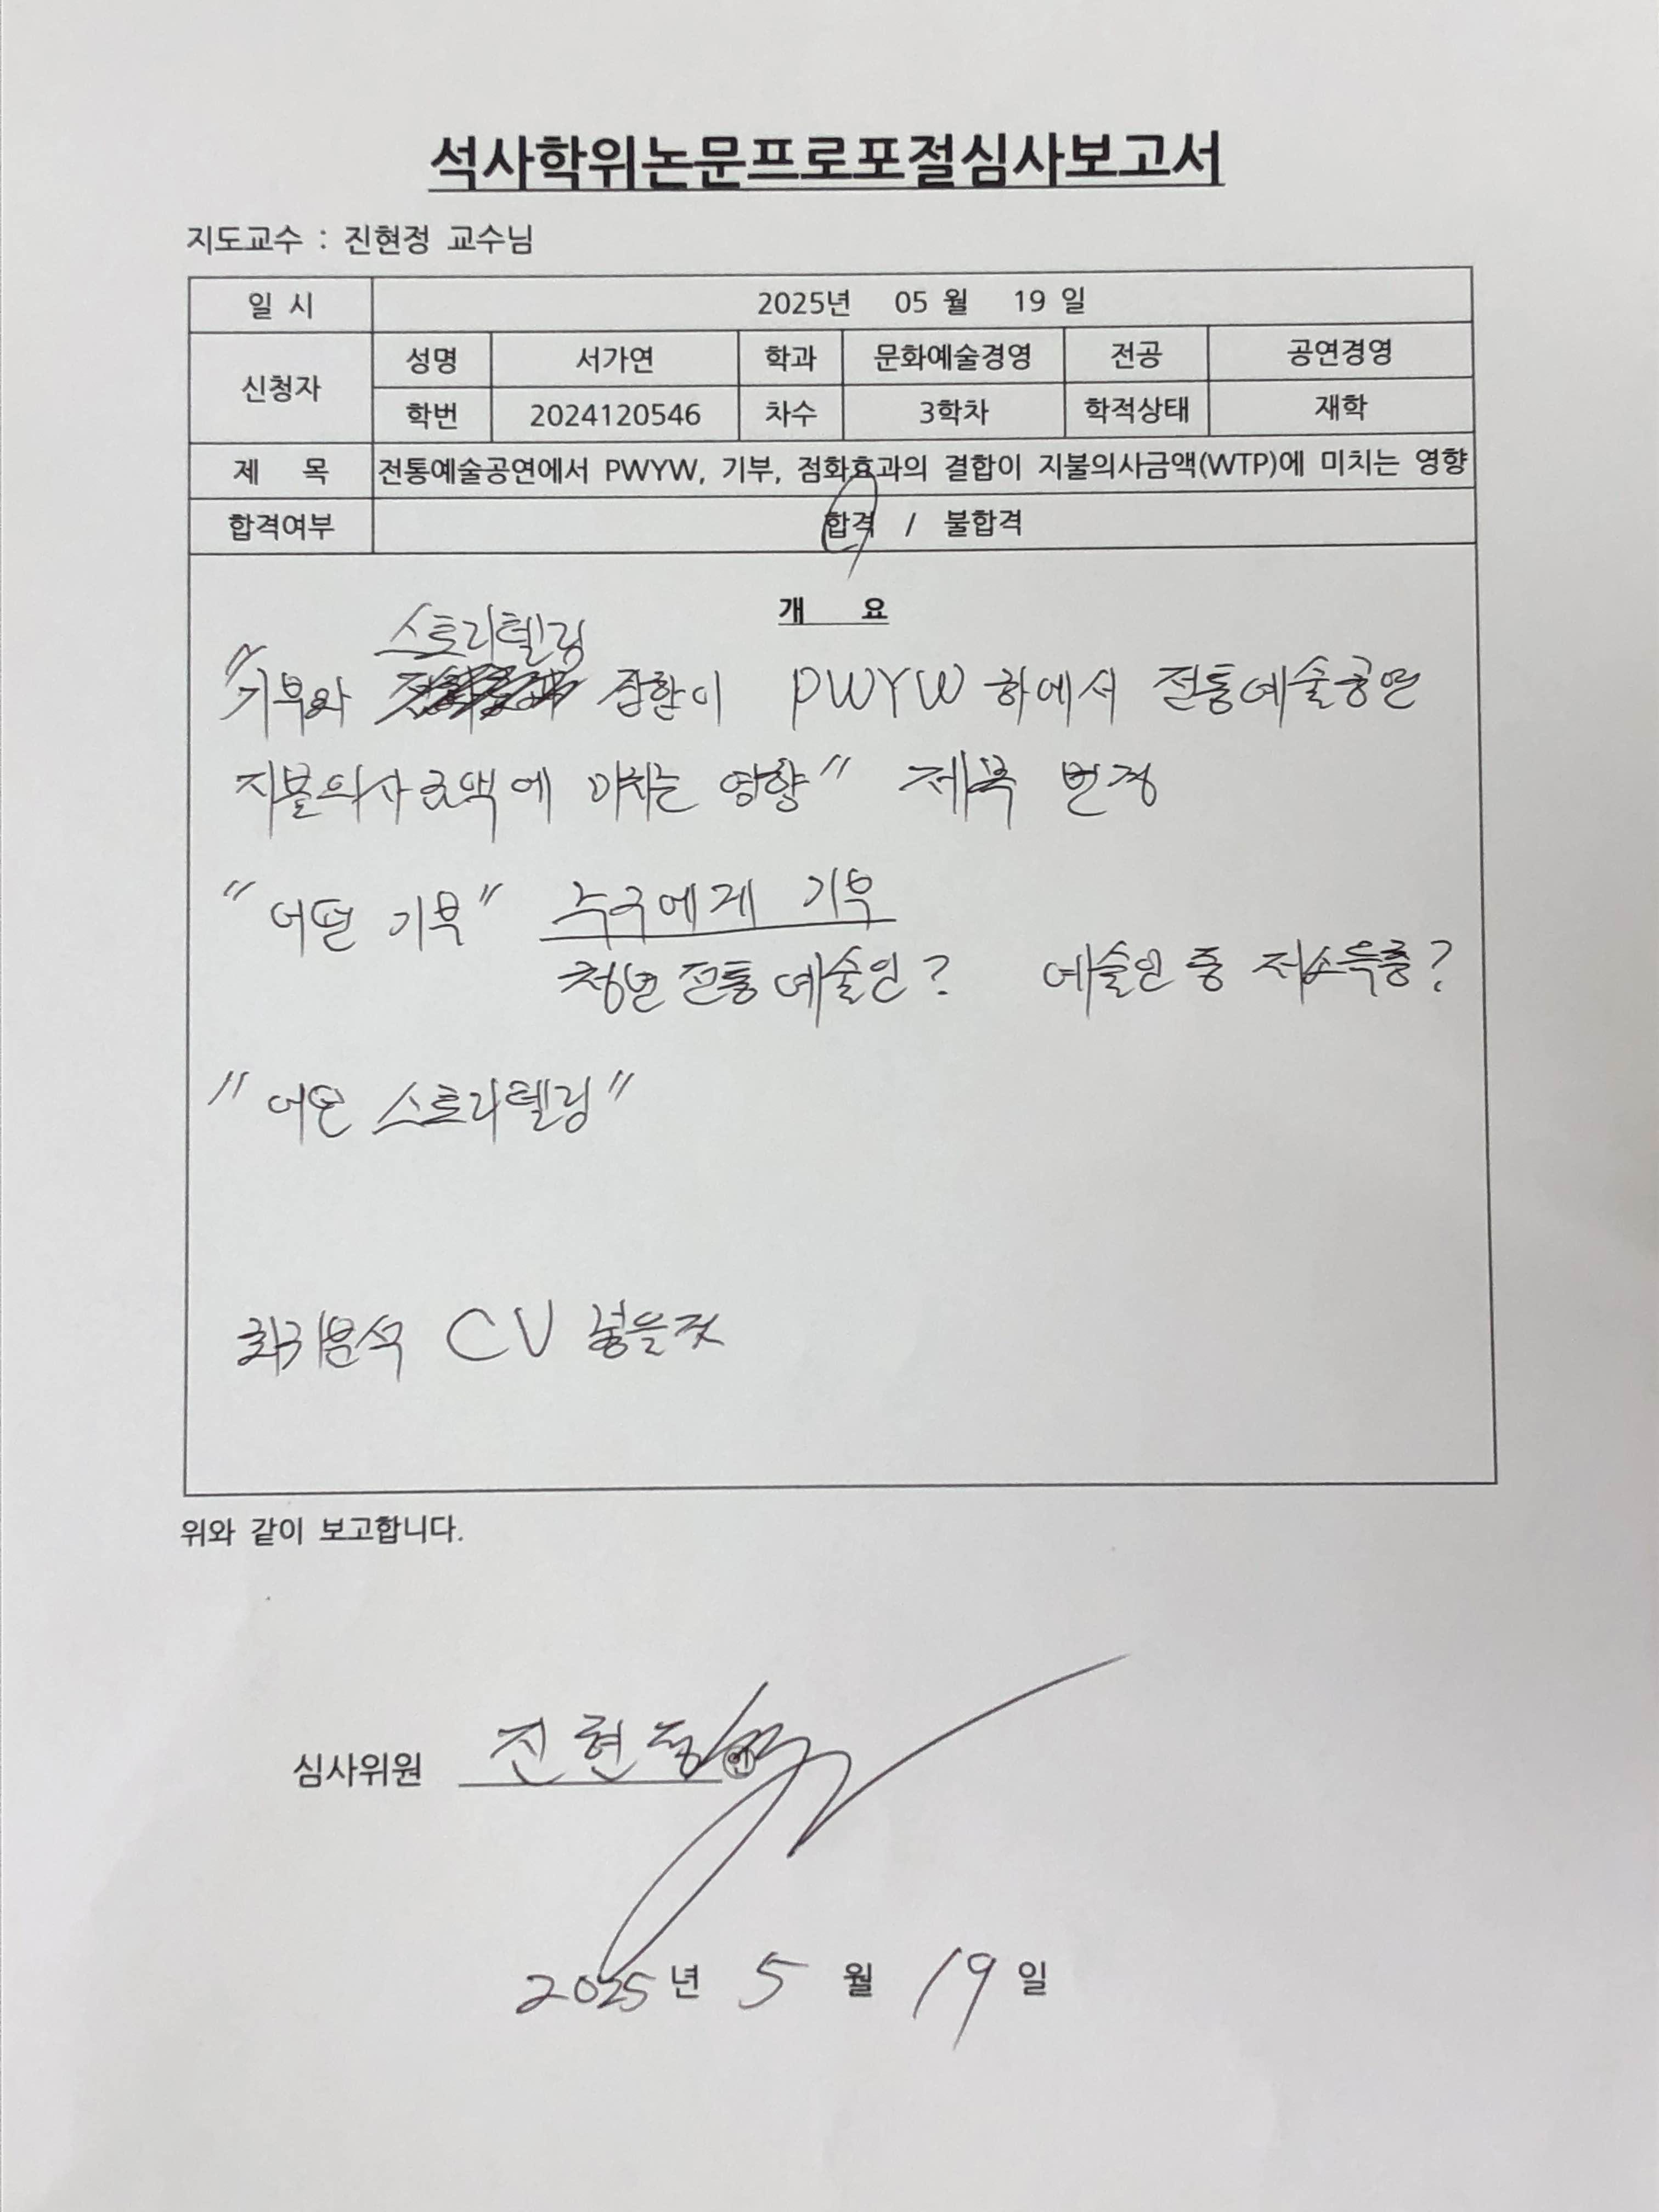 석사학위논문프로포절심사보고서
지도교수 : 진현정 교수님
일 시 2025년 05 월 19 일
신청자 성명 서가연 학과 문화예술경영 전공 공연경영
학번 2024120546 차수 3학차 학적상태 재학
제 목 전통예술공연에서 PWYW, 기부, 점화효과의 결합이 지불의사금액(WTP)에 미치는 영향
합격여부 합격 / 불합격
개 요
스토리텔링
"기부와 이 PWYW 하에서 전통예술공연
지불의사금액에 미치는 영향" 제목 변경
"어떤 기부" 누구에게 기부
청년 전통 예술인? 예술인 중 저소득층?
"어떤 스토리텔링"
회귀분석 CV 넣을것
위와 같이 보고합니다.
심사위원 진현정 인
2025 년 5 월 19 일